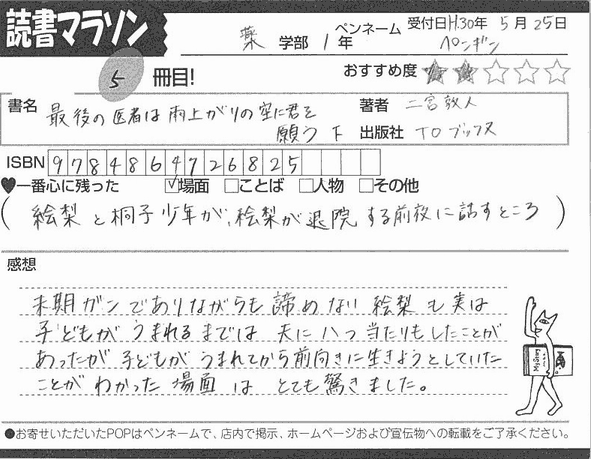 読書マラソン
薬 学部 1 年
ペンネーム ペンギン
受付日H.30年 5月 25日
5 冊目!
おすすめ度 ★★☆☆☆
書名 最後の医者は雨上がりの空に君を
願う 下
著者 二宮敦人
出版社 TOブックス
ISBN 9784864726825
♥一番心に残った ☑場面 □ことば □人物 □その他
( 絵梨と桐子少年が、絵梨が退院する前夜に話すところ )
感想
末期ガンでありながらも諦めない絵梨も実は
子どもがうまれるまでは夫に八つ当たりもしたことが
あったが子どもがうまれてから前向きに生きようとしていた
ことがわかった場面はとても驚きました。
●お寄せいただいたPOPはペンネームで、店内で掲示、ホームページおよび宣伝物への転載をご了承ください。